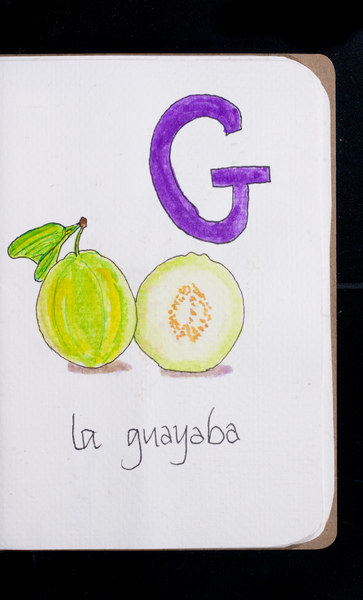 G
la guayaba